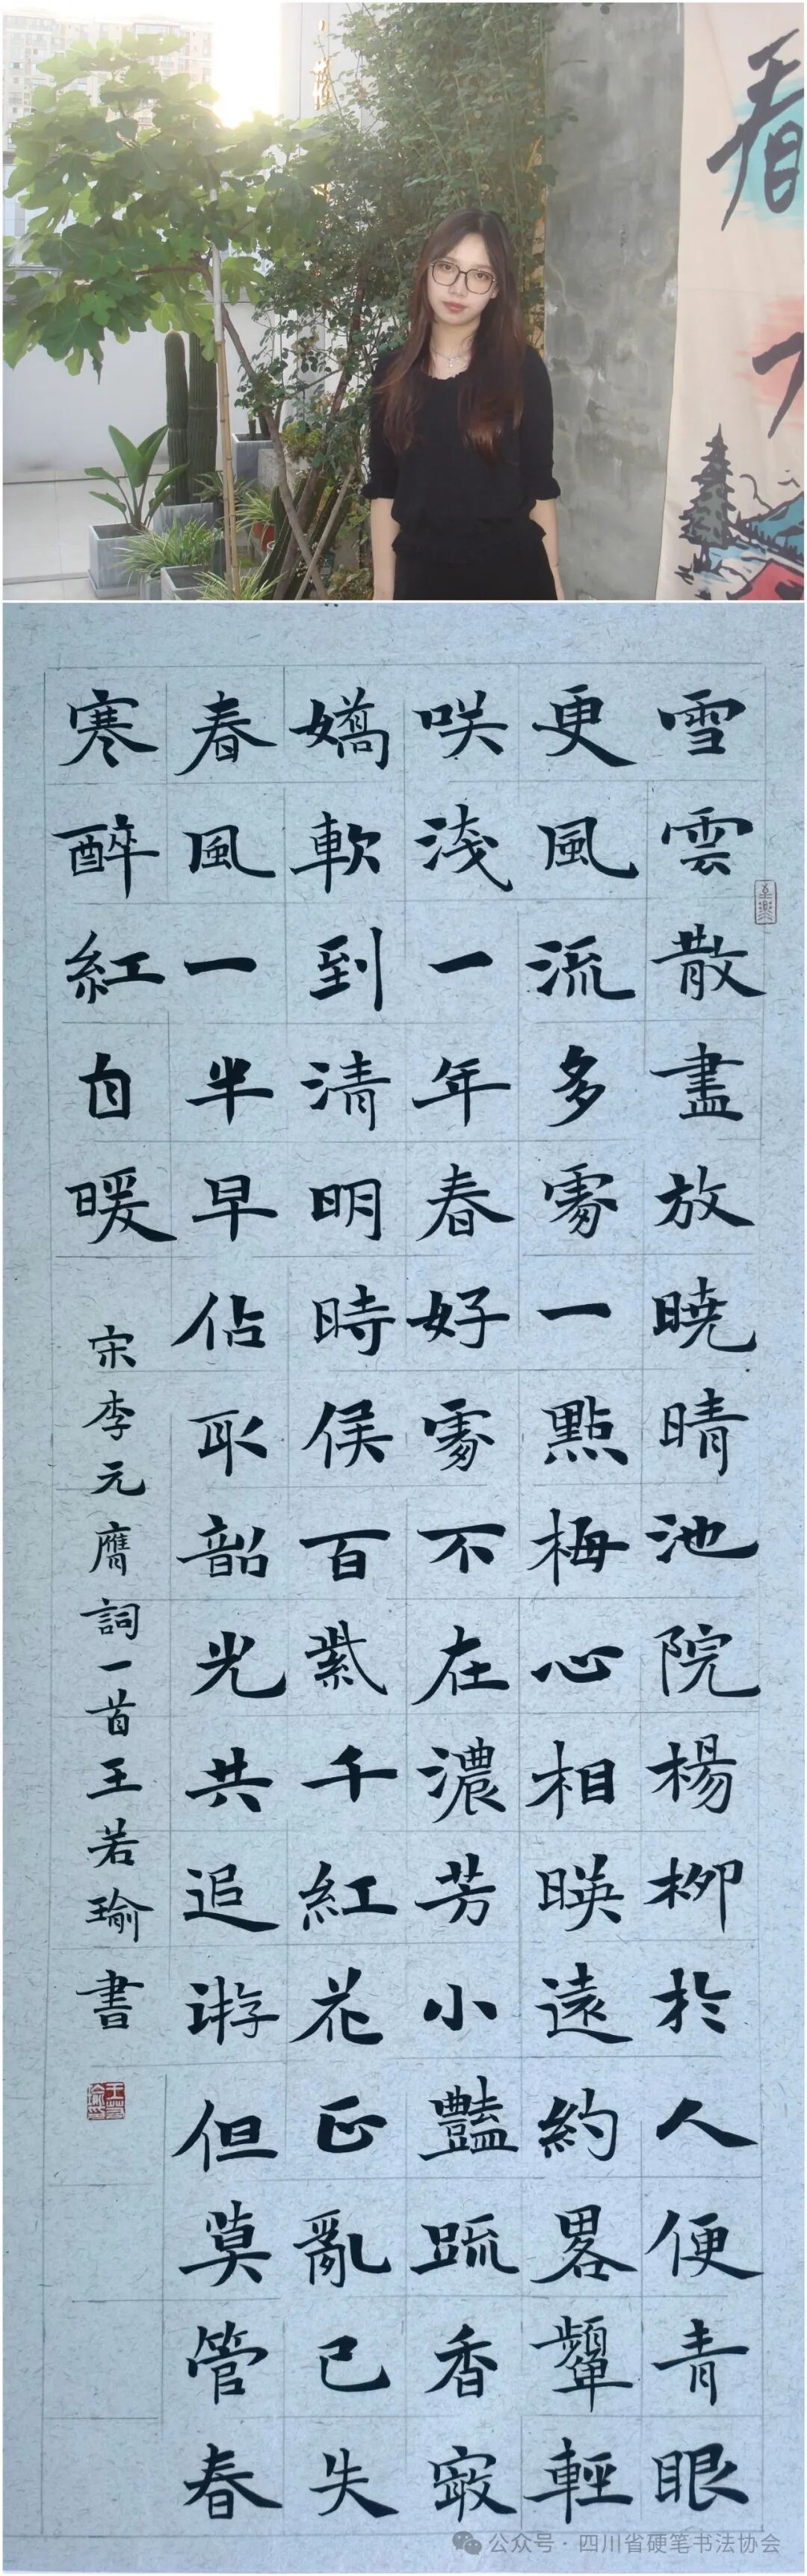 看
雪雲散盡放曉晴池院楊柳於人便青眼
更風流多處一點梅心相暎遠約畧顰輕
咲淺一年春好處不在濃芳小豔疏香㝡
嬌軟到清明時候百紫千紅花正亂已失
春風一半早佔取韶光共追游但莫管春
寒醉紅自暖
宋李元膺詞一首王若瑜書
公众号·四川省硬笔书法协会